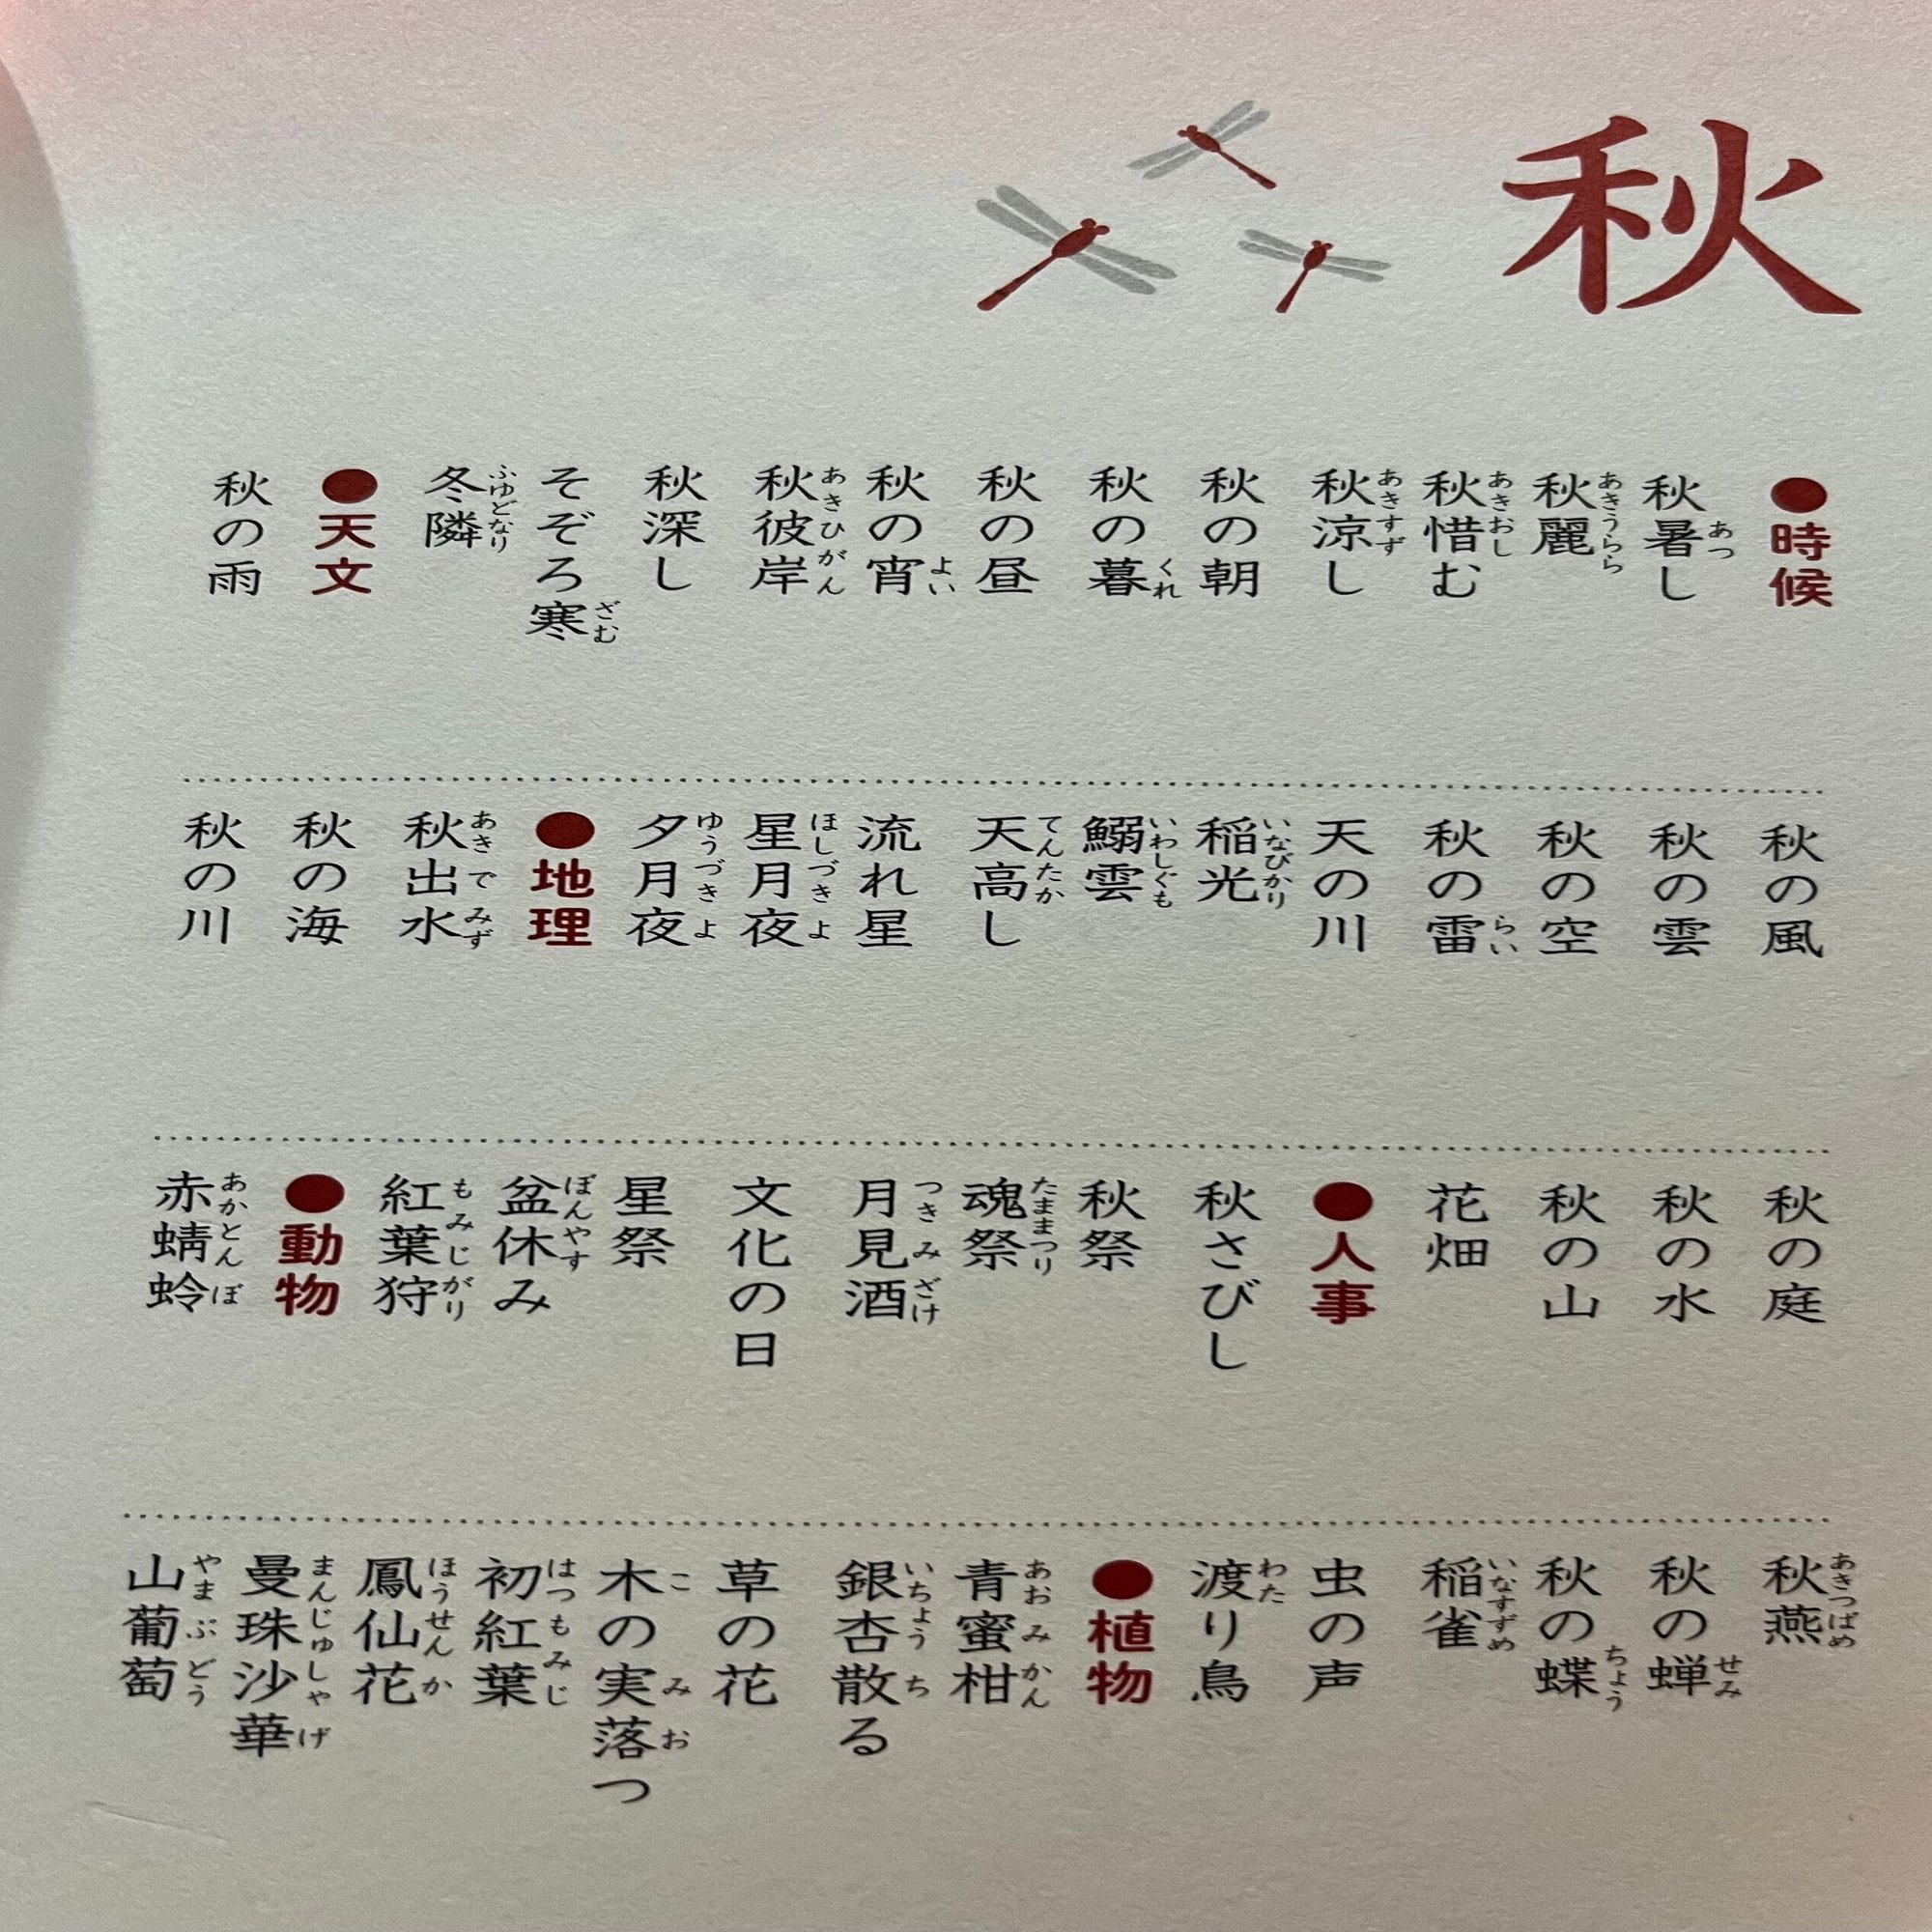 秋
●時候
秋暑し
秋麗
秋惜む
秋涼し
秋の朝
秋の暮
秋の昼
秋の宵
秋彼岸
秋深し
そぞろ寒
冬隣
●天文
秋の雨
秋の風
秋の雲
秋の空
秋の雷
天の川
稲光
鰯雲
天高し
流れ星
星月夜
夕月夜
●地理
秋出水
秋の海
秋の川
秋の庭
秋の水
秋の山
花畑
●人事
秋さびし
秋祭
魂祭
月見酒
文化の日
星祭
盆休み
紅葉狩
●動物
赤蜻蛉
秋燕
秋の蝉
秋の蝶
稲雀
虫の声
渡り鳥
●植物
青蜜柑
銀杏散る
草の花
木の実落つ
初紅葉
鳳仙花
曼珠沙華
山葡萄